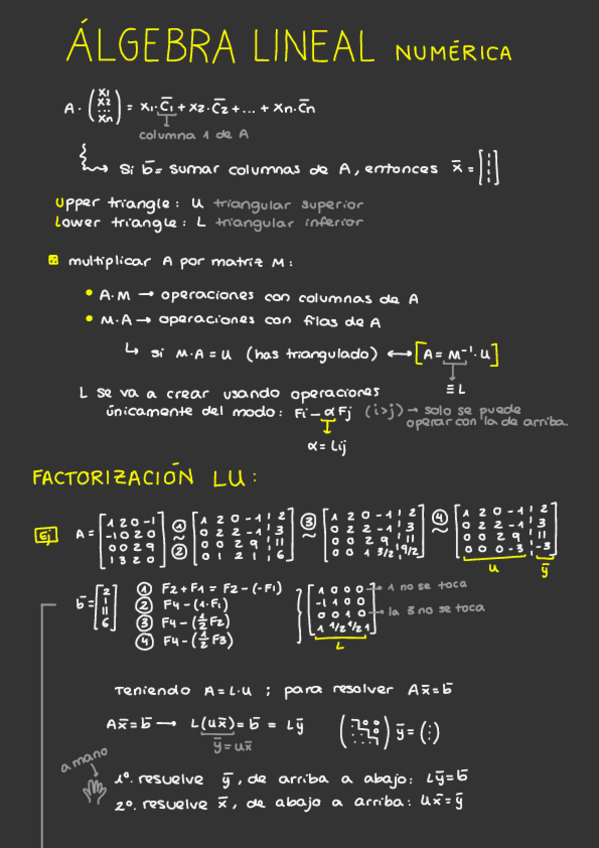 ÁLGEBRA LINEAL NUMÉRICA
A · (x1 x2 ... xn) = x1·C̄1 + x2·C̄2 + ... + xn·C̄n
columna 1 de A
Si b̄ = sumar columnas de A, entonces x̄ = [1 1 1 1]
Upper triangle: U triangular superior
Lower triangle: L triangular inferior
multiplicar A por matriz M:
• A·M → operaciones con columnas de A
• M·A → operaciones con filas de A
↳ si M·A = U (has triangulado) ↔ [A = M⁻¹·U]
≡ L
L se va a crear usando operaciones
únicamente del modo: Fi - αFj (i>j) → solo se puede
operar con la de arriba.
α = Lij
FACTORIZACIÓN LU:
Ej A = [1 2 0 -1; -1 0 2 0; 0 0 2 9; 1 3 2 0] ① ~ ~ ② [1 2 0 -1 ¦ 2; 0 2 2 -1 ¦ 3; 0 0 2 9 ¦ 11; 0 1 2 1 ¦ 6] ③ ~ [1 2 0 -1 ¦ 2; 0 2 2 -1 ¦ 3; 0 0 2 9 ¦ 11; 0 0 1 3/2 ¦ 9/2] ④ ~ [1 2 0 -1 ¦ 2; 0 2 2 -1 ¦ 3; 0 0 2 9 ¦ 11; 0 0 0 -3 ¦ -3]
U ȳ
b̄ = [2 1 11 6]
① F2 + F1 = F2 - (-F1)
② F4 - (1·F1)
③ F4 - (1/2 F2)
④ F4 - (1/2 F3)
[1 0 0 0; -1 1 0 0; 0 0 1 0; 1 1/2 1/2 1]
→ 1 no se toca
→ la 3 no se toca
L
Teniendo A = L·U ; para resolver Ax̄ = b̄
Ax̄ = b̄ → L(Ux̄) = b̄ = Lȳ
ȳ = Ux̄
ȳ = (:)
a mano
1º. resuelve ȳ, de arriba a abajo: Lȳ = b̄
2º. resuelve x̄, de abajo a arriba: Ux̄ = ȳ